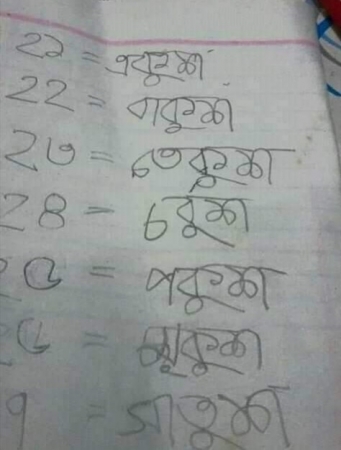 ২১ = একুশ
২২ = বাকুশ
২৩ = তেকুশ
২৪ = চকুশ
২৫ = পকুশ
২৬ = ছাকুশ
৭ = সাতুশ